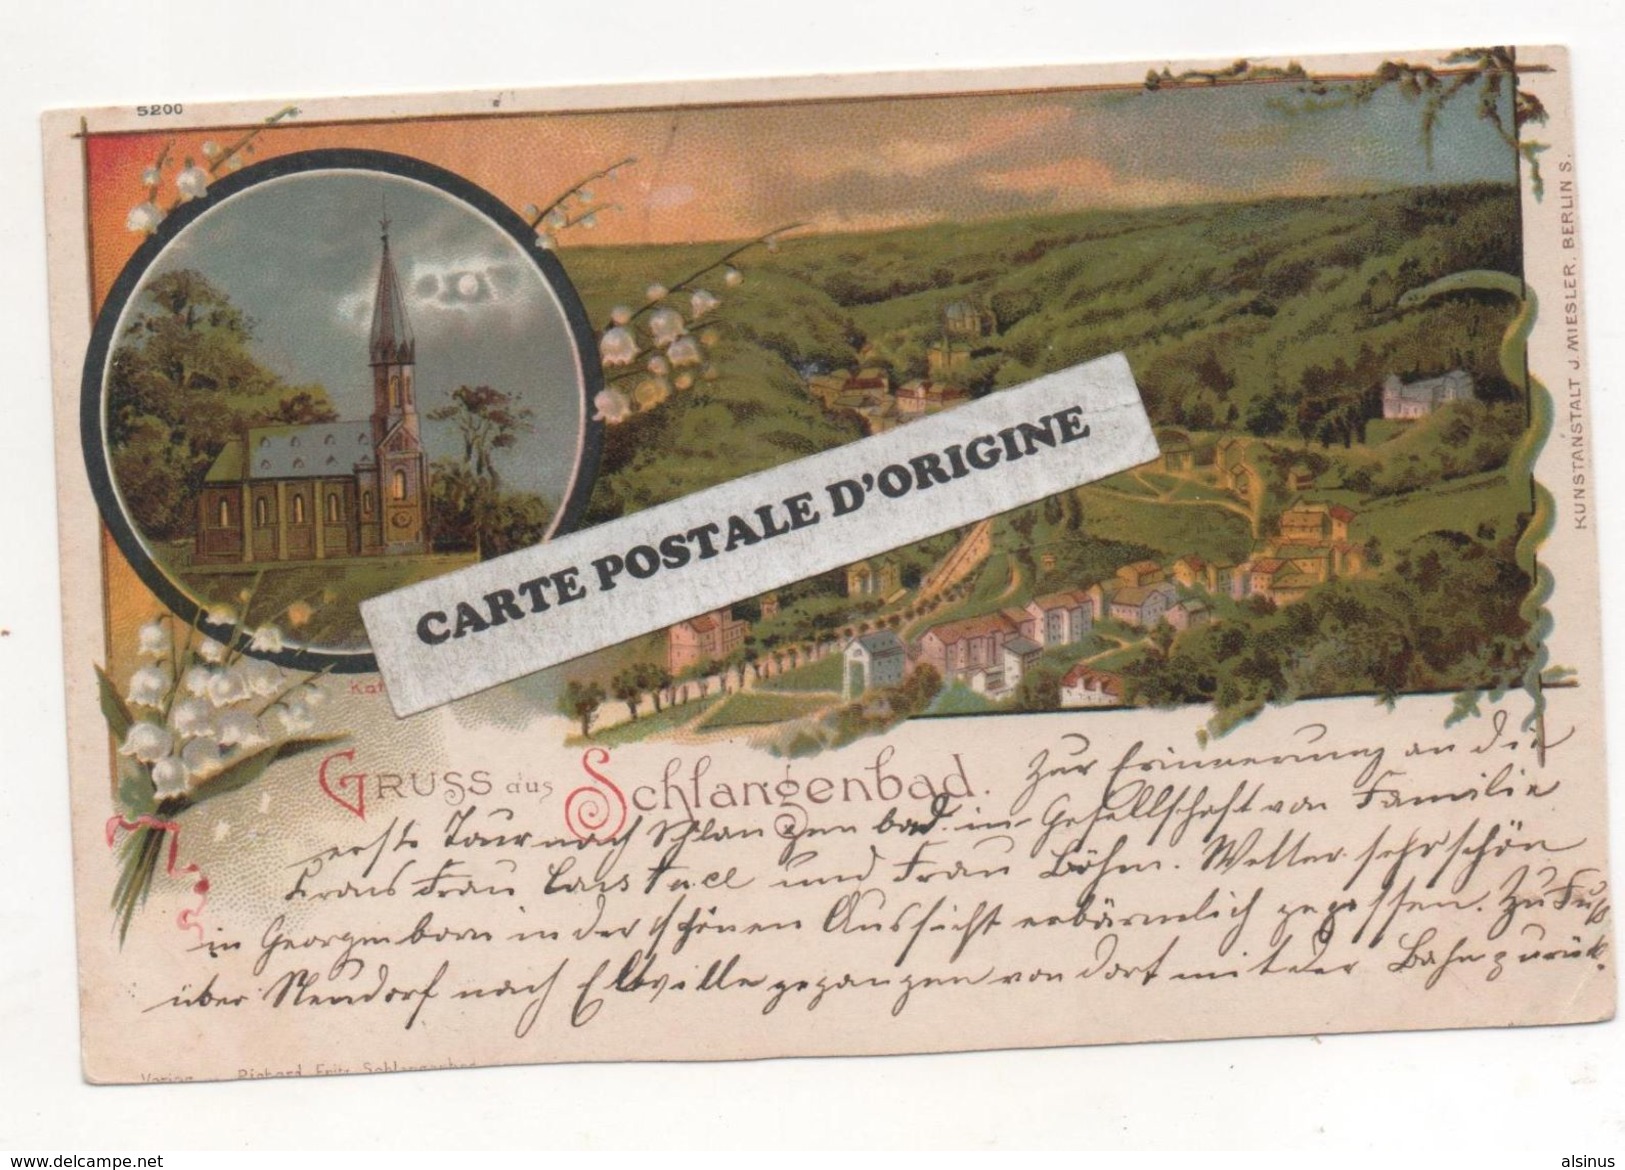 5200
KUNSTANSTALT J. MIESLER, BERLIN S.
CARTE POSTALE D'ORIGINE
Kat
GRUSS aus Schlangenbad.
Zur Erinnerung an die
erste Tour nach Schlangenbad in Gesellschaft von Familie
Frau und Frau Böhm. Wetter sehr schön
in Georgenborn in der schönen Aussicht erbärmlich gegessen. Zu Fuß
über Neudorf nach Eltville gegangen von dort mit der Bahn zurück.
Verlag Richard Fritz Schlangenbad
www.delcampe.net
alsinus